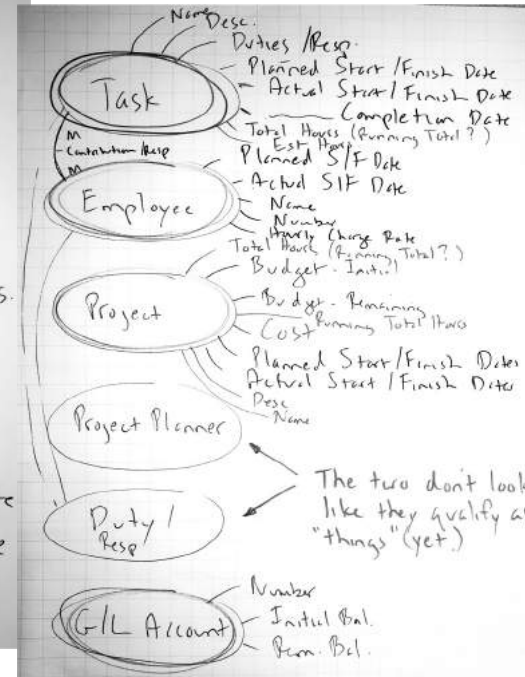 Name
Desc.
Duties /Resp.
Planned Start /Finish Date
Actual Start / Finish Date
Completion Date
Total Hours (Running Total?)
Est Hours
Task
M
Contribution /Resp
M
Planned S/F Date
Actual S/F Date
Name
Number
Hourly Charge Rate
Employee
Total Hours (Running Total?)
Budget - Initial
Budget - Remaining
Running Total Hours
Cost
Project
Planned Start /Finish Dates
Actual Start / Finish Dates
Desc
Name
Project Planner
The two don't look
like they qualify a
"things" (yet.)
Duty /
Resp
Number
Initial Bal.
Rem. Bal.
G/L Account